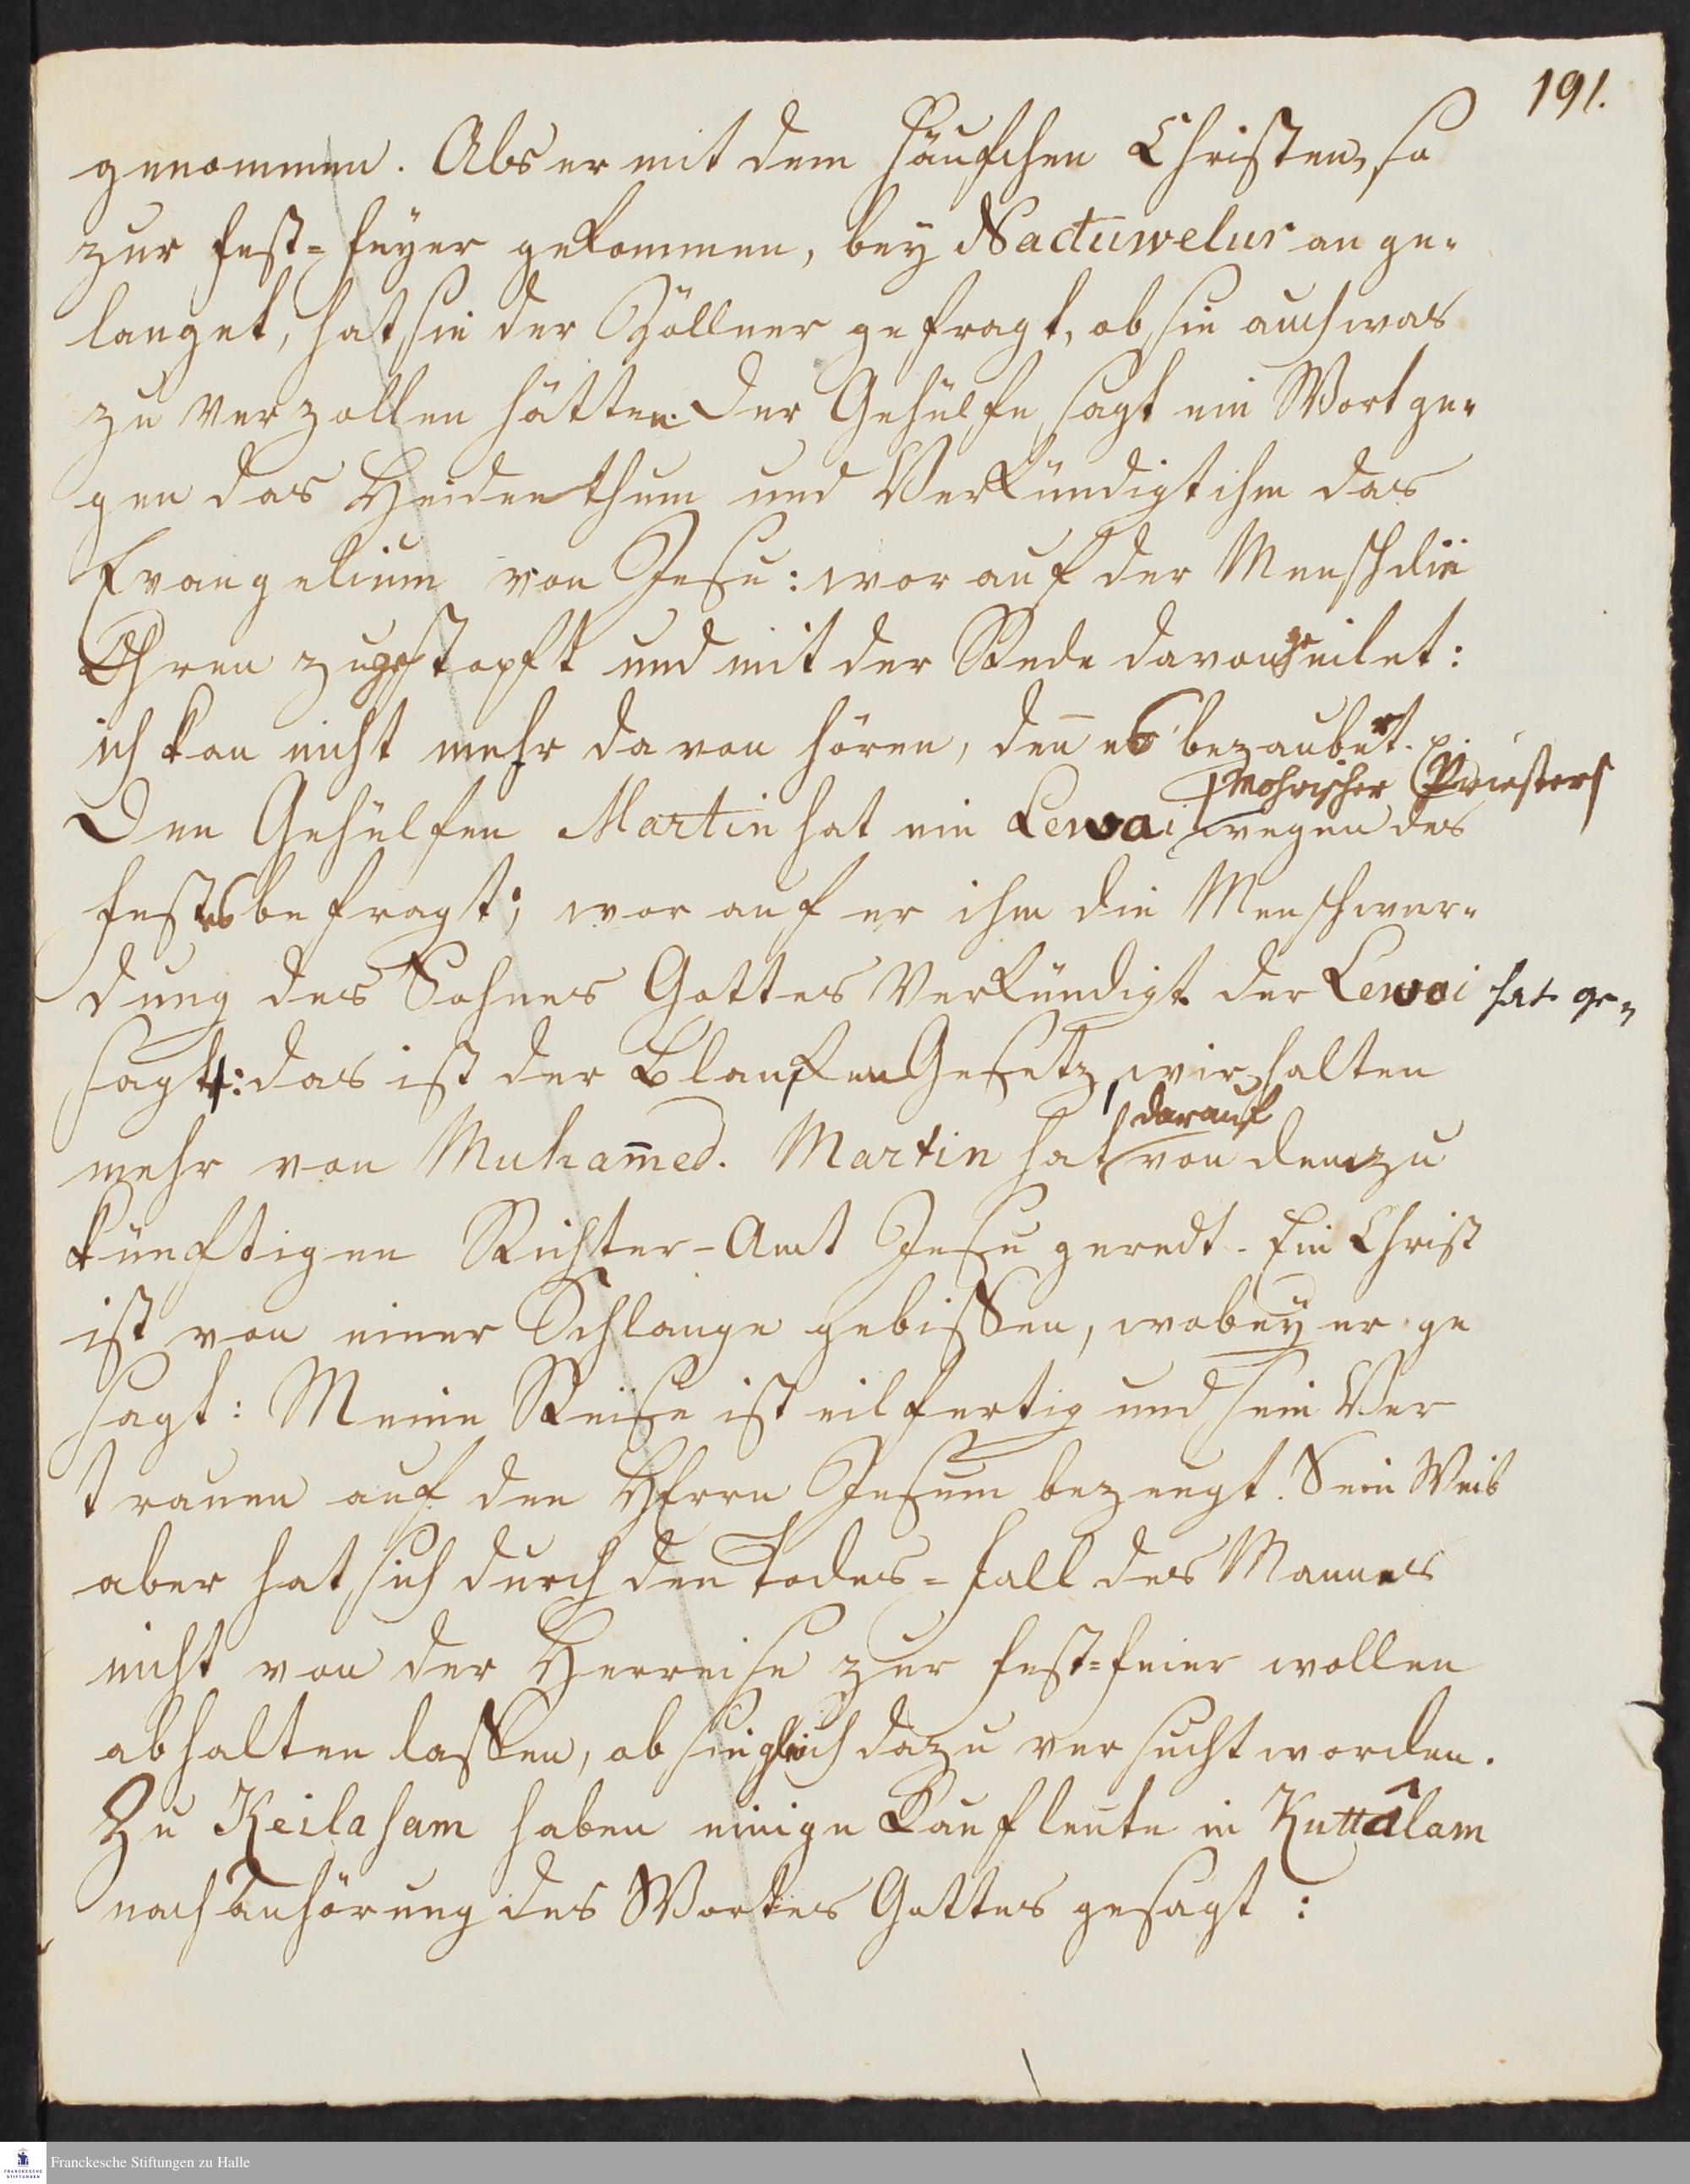 191.
genommen. Als er mit dem Häufchen Christen, so
zur Fest-Feyer gekommen, bey Nactuwelur an ge-
langet, hat sie der Zöllner gefragt, ob sie auch was
zu verzollen hätten. Der Gehülfe sagt ein Wort ge-
gen das Heidenthum und verkündigt ihm das
Evangelium von Jesu: worauf der Mensch die
Ohren zugestopft und mit der Rede davon geeilet:
ich kan nicht mehr davon hören, deñ es bezaubert.
Den Gehülfen Martin hat ein Lewai Mohrischer Priester wegen des
Festes befragt; worauf er ihm die Menschwer-
dung des Sohnes Gottes verkündigt. Der Lewai hat ge-
sagt: das ist der Blanken Gesetz, wir halten
mehr von Muham̃ed. Martin hat darauf von dem zu
künftigen Richter-Amt Jesu geredt. Ein Christ
ist von einer Schlange gebissen, wobey er ge
sagt: Meine Reise ist eilfertig und sein Ver
trauen auf den HErrn Jesum bezeugt. Sein Weib
aber hat sich durch den Todes-Fall des Mannes
nicht von der Herreise zur Fest-Feier wollen
abhalten lassen, ob sie gleich dazu versucht worden.
Zu Keilasam haben einige Kaufleute in Kuttâlam
nach Anhörung des Wortes Gottes gesagt:
Franckesche Stiftungen zu Halle
FRANCKESCHE
STIFTUNGEN